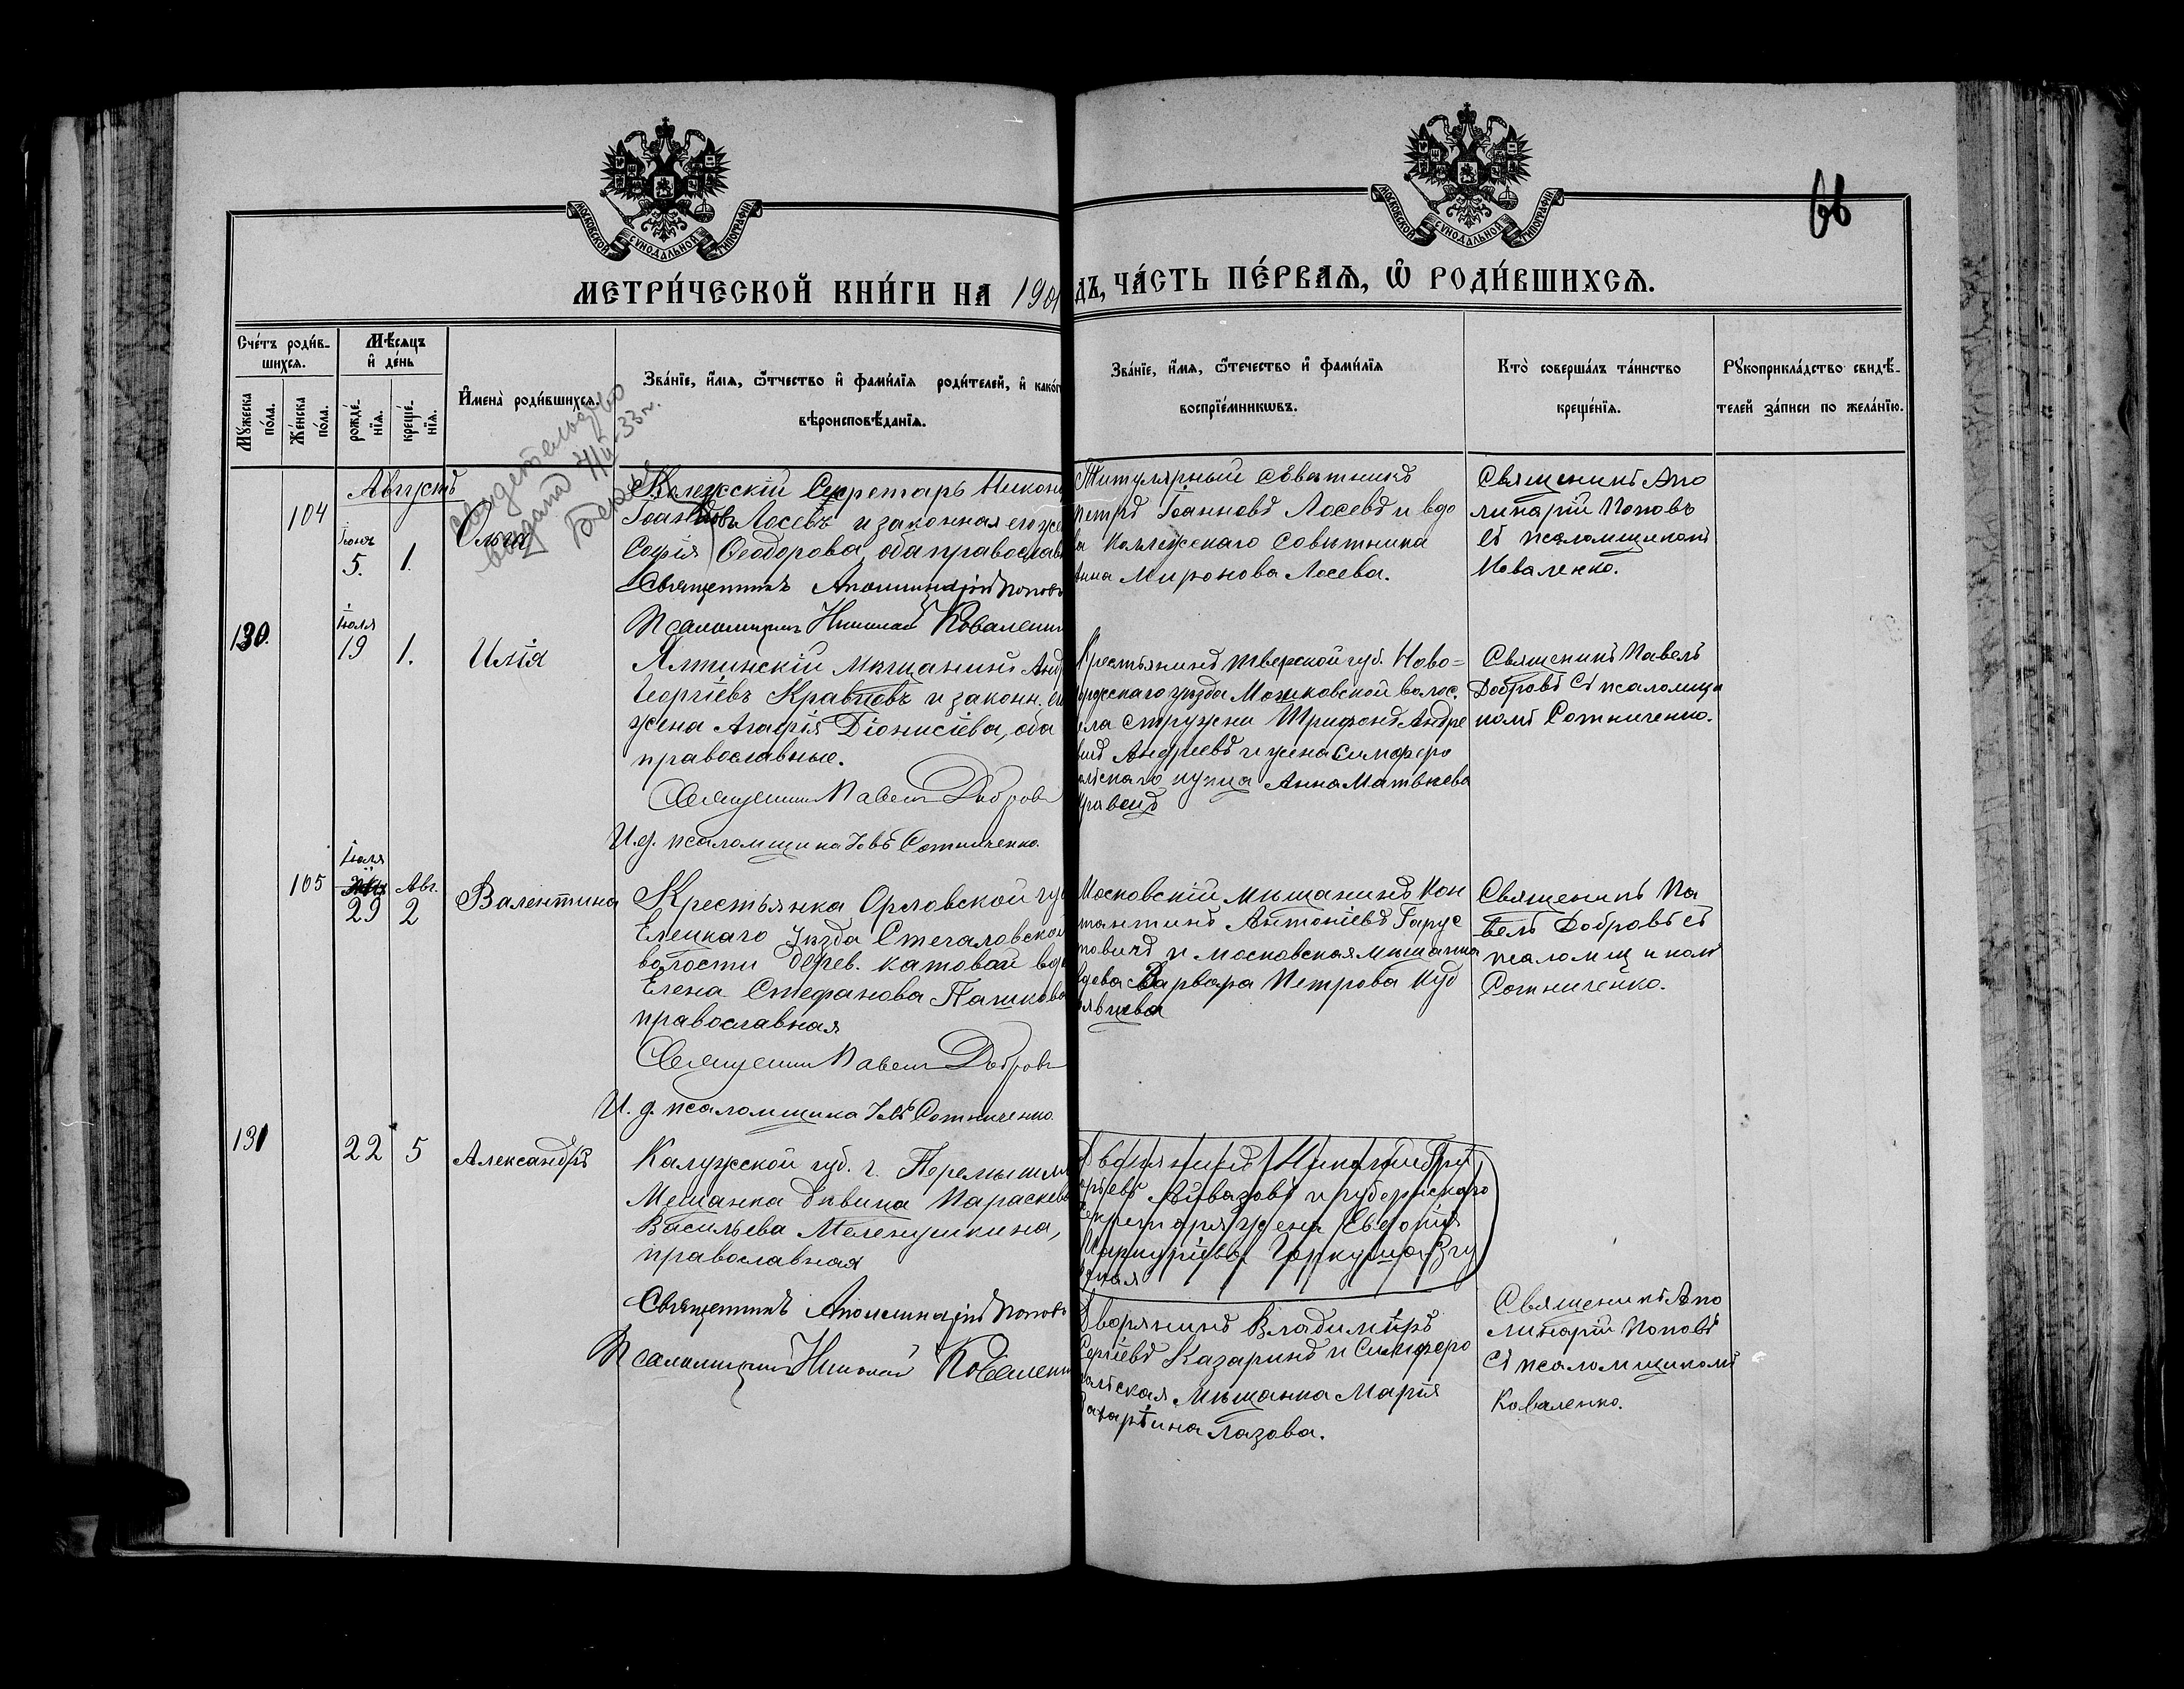 МОСКОВСКОЙ СѴНОДАЛЬНОЙ ТИПОГРАФІИ
МОСКОВСКОЙ СѴНОДАЛЬНОЙ ТИПОГРАФІИ
66
МЕТРИ́ЧЕСКОЙ КНИ́ГИ НА 190
ДЪ, ЧА́СТЬ ПЕ́РВАѦ, Ѡ҆ РОДИ́ВШИХСѦ.
Сче́тъ роди́в-
шихсѧ.
Мꙋ́жеска
по́ла.
Же́нска
по́ла.
Мѣ́сѧцъ
и҆ де́нь
рожде́-
нїѧ.
креще́-
нїѧ.
И҆мена̀ роди́вшихсѧ.
Зва́нїе, и҆́мѧ, ѻ҆́тчество и҆ фами́лїѧ роди́телей, и҆ како́г
вѣроисповѣ́данїѧ.
Зва́нїе, и҆́мѧ, ѻ҆́течество и҆ фами́лїѧ
воспрїе́мникωвъ.
Кто̀ соверша́лъ та́инство
креще́нїѧ.
Рꙋкоприкла́дство свидѣ́-
телей за́писи по жела́нїю.
Свидетельство
выдано
33 г.
Августъ
104
Іюня
5.
1.
Ольга
Колежскій Секретарь Никон
Іоанновъ Лосевъ и законная его же
Софія Ѳеодорова, оба православ
Священникъ Аполлинарій Поповъ
Псаломщикъ Николай Коваленк
Титулярный совѣтникъ
Петръ Іоанновъ Лосевъ и вдо
ва Коллежскаго Совѣтника
Анна Миронова Лосева.
Священикъ Апо
линарій Поповъ
съ псаломщикомъ
Коваленко.
130.
Іюля
19
1.
Илія
Ялтинскій мѣщанинъ Анд
Георгіевъ Кравцовъ и законн. ег
жена Агафія Діонисіева, оба
православные.
Священникъ Павелъ Добровъ
И.д. псаломщика Іовъ Сотниченко.
Крестьянинъ Тверской губ. Ново=
оржскаго уѣзда Мошковской волос.
села Стружни Трифонъ Андре
евъ Андреевъ и жена Симферо
польскаго купца Анна Матвѣева
Кравецъ
Священикъ Павелъ
Добровъ съ псаломщи
комъ Сотниченко.
105
Іюля
29
Авг.
2
Валентина
Крестьянка Орловской гу
Елецкаго Уѣзда Стегаловской
волости дерев. Катовой вдо
Елена Стефанова Пашкова
православная
Священникъ Павелъ Добровъ
И. д. псаломщика Іовъ Сотниченко.
Московскій мѣщанинъ Кон
стантинъ Антоніевъ Гарус
новичъ и московская мѣщанка
вдова Варвара Петрова Куд
рявцева
Священикъ Па
велъ Добровъ съ
псаломщикомъ
Сотниченко.
131
22
5
Александръ
Калужской губ. г. Перемышля
Мещанка дѣвица Параскева
Васильева Меленушкина,
православная
Священникъ Аполлинарій Поповъ
Псаломщикъ Николай Коваленк
Дворянинъ Николай Гри
горьевъ Айвазовъ и губернскаго
секретаря жена Евдокія
Дворянинъ Владиміръ
Сергіевъ Казаринъ и Симферо
польская мѣщанка Марія
Захаріина Лазова.
Священикъ Апо
линарій Поповъ
съ псаломщикомъ
Коваленко.